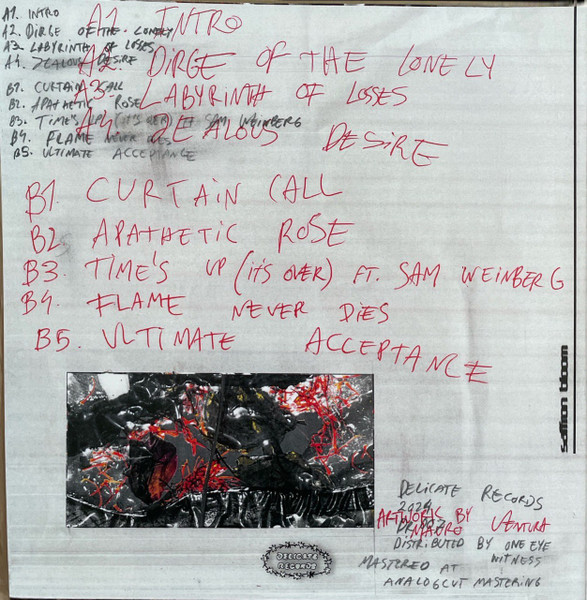 A1. INTRO
A2. DIRGE OF THE LONELY
A3. LABYRINTH OF LOSES
A4. ZEALOUS DESIRE
B1. CURTAIN CALL
B2. APATHETIC ROSE
B3. TIME'S UP (IT'S OVER) FT SAM WEINBERG
B4. FLAME NEVER DIES
B5. ULTIMATE ACCEPTANCE
A1. INTRO
A2. DIRGE OF THE LONELY
A3. LABYRINTH OF LOSES
A4. ZEALOUS DESIRE
B1. CURTAIN CALL
B2. APATHETIC ROSE
B3. TIME'S UP (IT'S OVER) FT. SAM WEINBERG
B4. FLAME NEVER DIES
B5. ULTIMATE ACCEPTANCE
saffron bloom
DELICATE RECORDS
DELICATE RECORDS
2024
ARTWORK BY MAURO VENTURA
DISTRIBUTED BY ONE EYE WITNESS
MASTERED AT
ANALOGCUT MASTERING